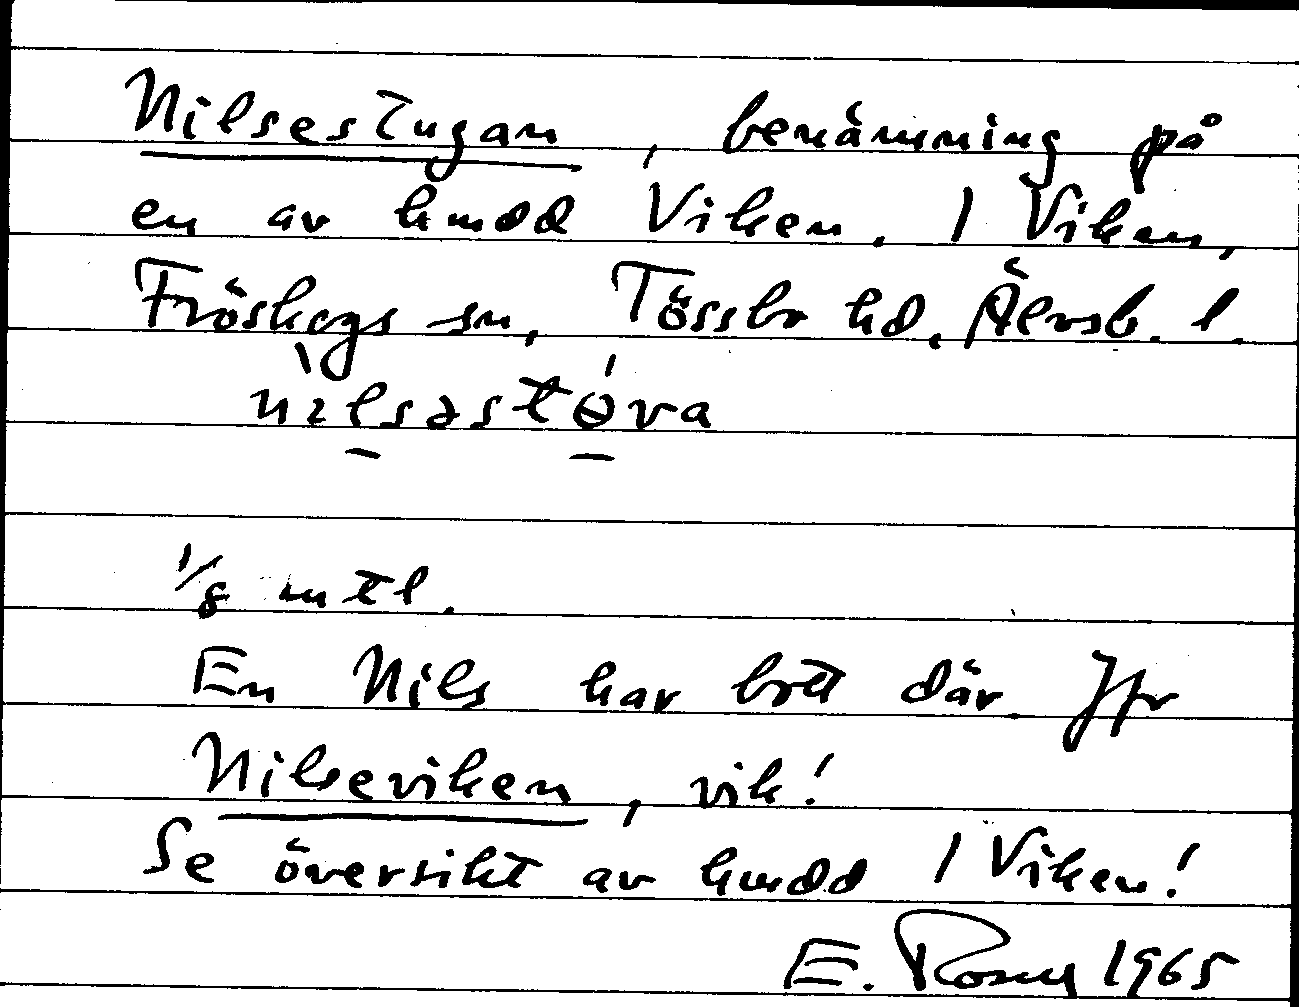 Nilsestugan, benämning på
en av hmdd Viken. 1 Viken,
Fröskogs sn, Tössbo hd. Älvsb. l.
nìlsəstɵ́va
1/8 mtl.
En Nils har bott där. Jfr
Nilseviken, vik!
Se översikt av hmdd 1 Viken!
E. 1965